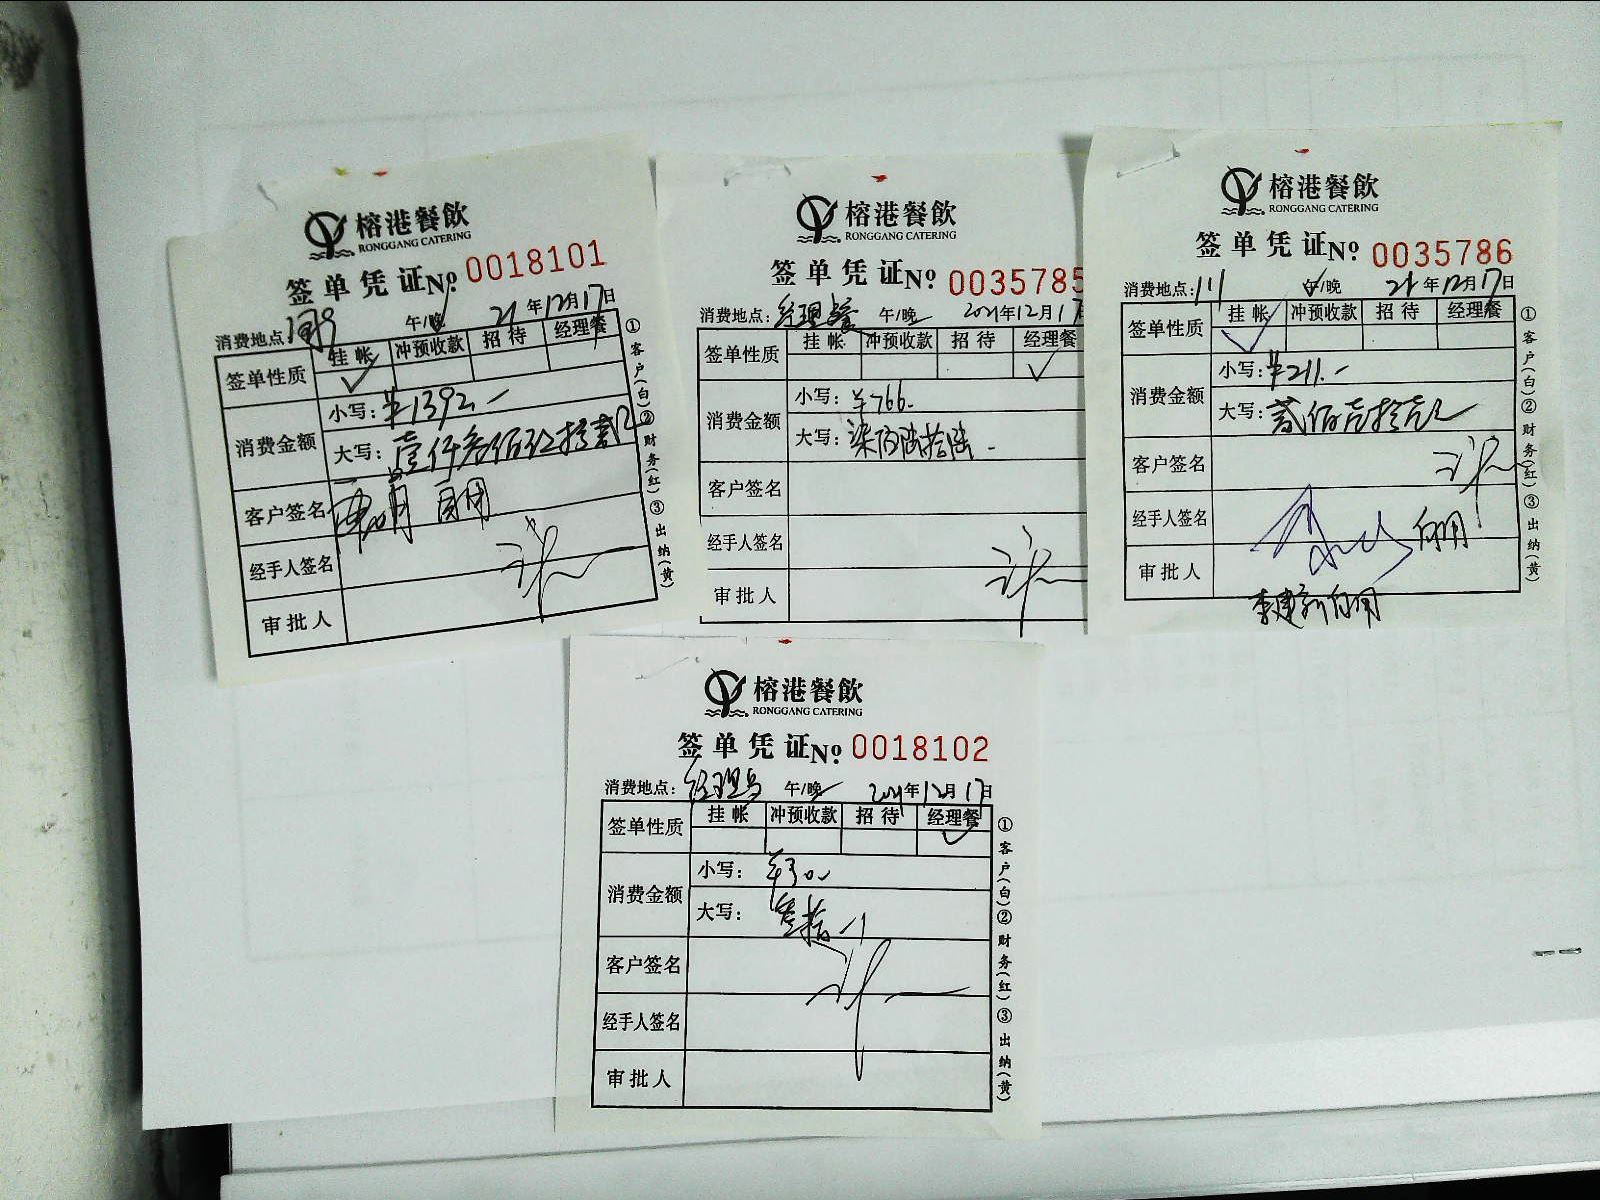 榕港餐飲
RONGGANG CATERING
签单凭证No 0018101
消费地点: 午/晚 21年12月17日
签单性质 挂帐 冲预收款 招待 经理餐
✓
消费金额 小写: ¥1392.-
大写: 壹仟叁佰玖拾贰元
客户签名
经手人签名
审批人
①客户(白)②财务(红)③出纳(黄)
榕港餐飲
RONGGANG CATERING
签单凭证No 0035785
消费地点: 经理餐 午/晚 2021年12月17
签单性质 挂帐 冲预收款 招待 经理餐
✓
消费金额 小写: ¥766.-
大写: 柒佰陆拾陆.-
客户签名
经手人签名
审批人
榕港餐飲
RONGGANG CATERING
签单凭证No 0035786
消费地点: 111 午/晚 21年12月17日
签单性质 挂帐 冲预收款 招待 经理餐
✓
消费金额 小写: ¥211.-
大写: 贰佰壹拾壹元
客户签名
经手人签名
审批人
李建新
①客户(白)②财务(红)③出纳(黄)
榕港餐飲
RONGGANG CATERING
签单凭证No 0018102
消费地点: 经理 午/晚 2021年12月17日
签单性质 挂帐 冲预收款 招待 经理餐
✓
消费金额 小写: ¥30.-
大写: 叁拾
客户签名
经手人签名
审批人
①客户(白)②财务(红)③出纳(黄)